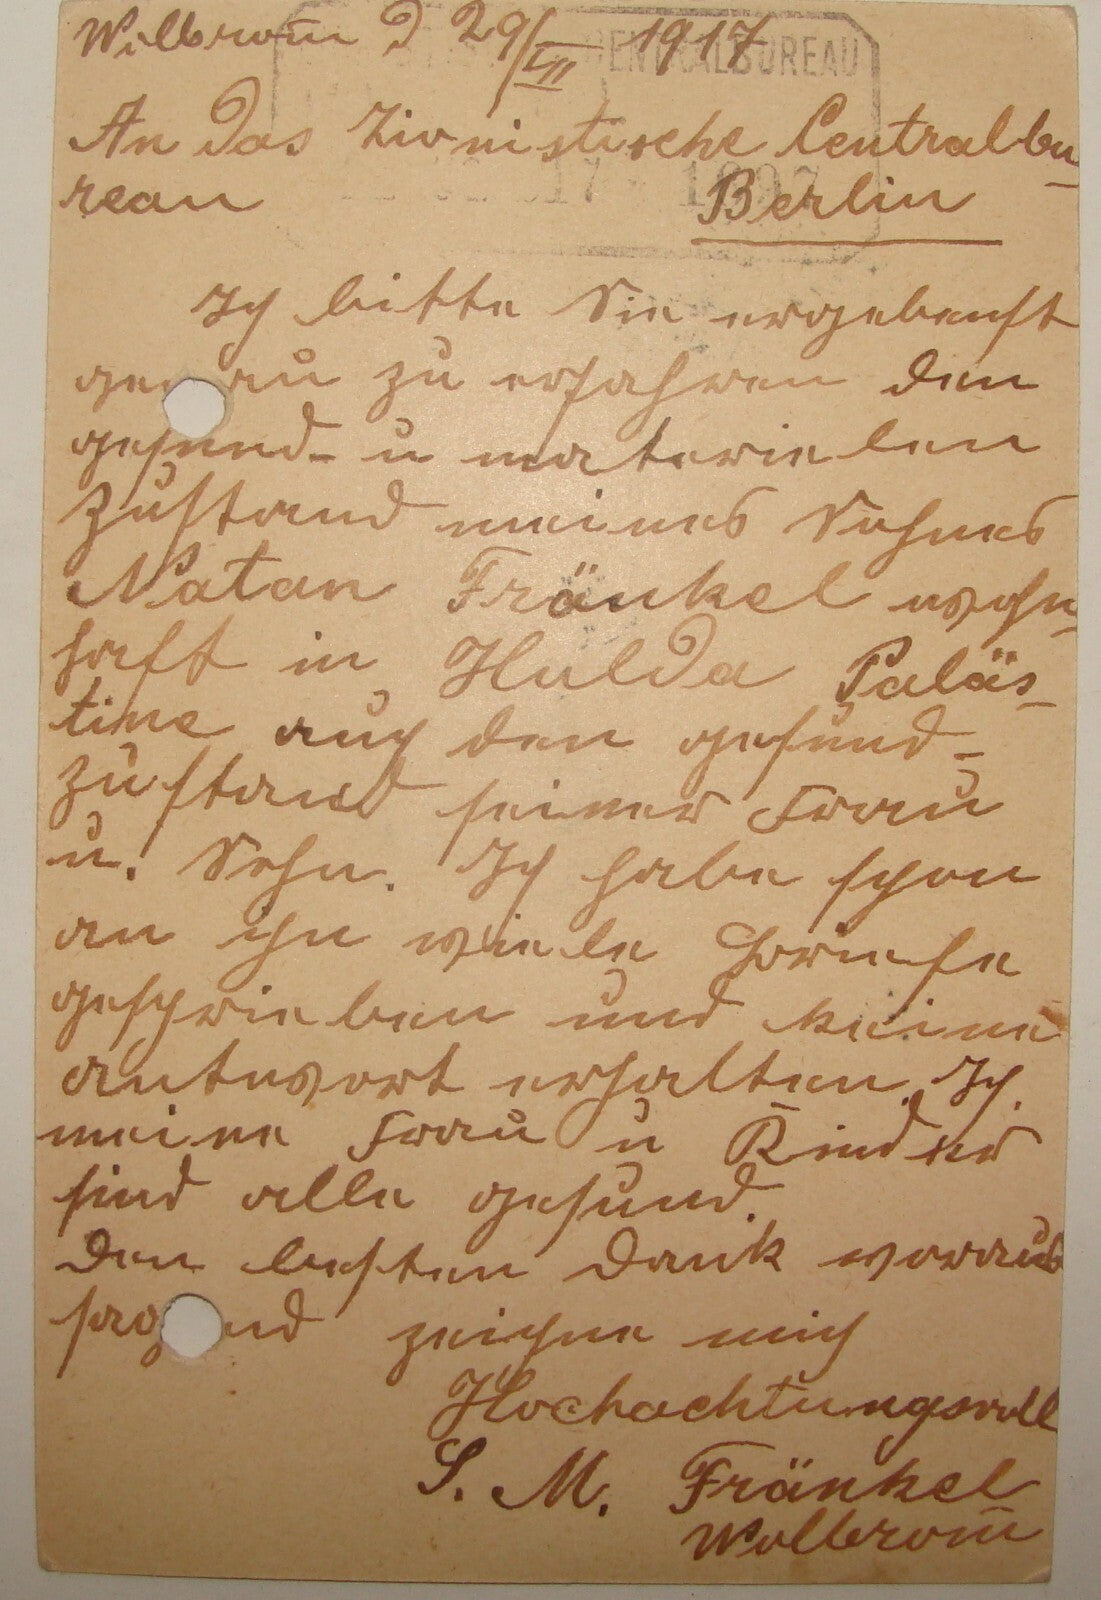 Wolbrom d 29/VII 1917
An das Zionistische Centralbu-
reau Berlin
Ich bitte Sie ergebenst
genau zu erfahren den
gesund- u materielen
Zustand meines Sohnes
Natan Fränkel wohn-
haft in Hulda Paläs-
tine auch den gesund-
zustand seiner Frau
u. Sohn. Ich habe schon
an ihn wiele Briefe
geschrieben und keine
antwort erhalten. Ich,
meine Frau u Kinder
sind alle gesund.
Den besten Dank voraus
sagend zeichne mich
Hochachtungsvoll
S. M. Fränkel
Wolbrom